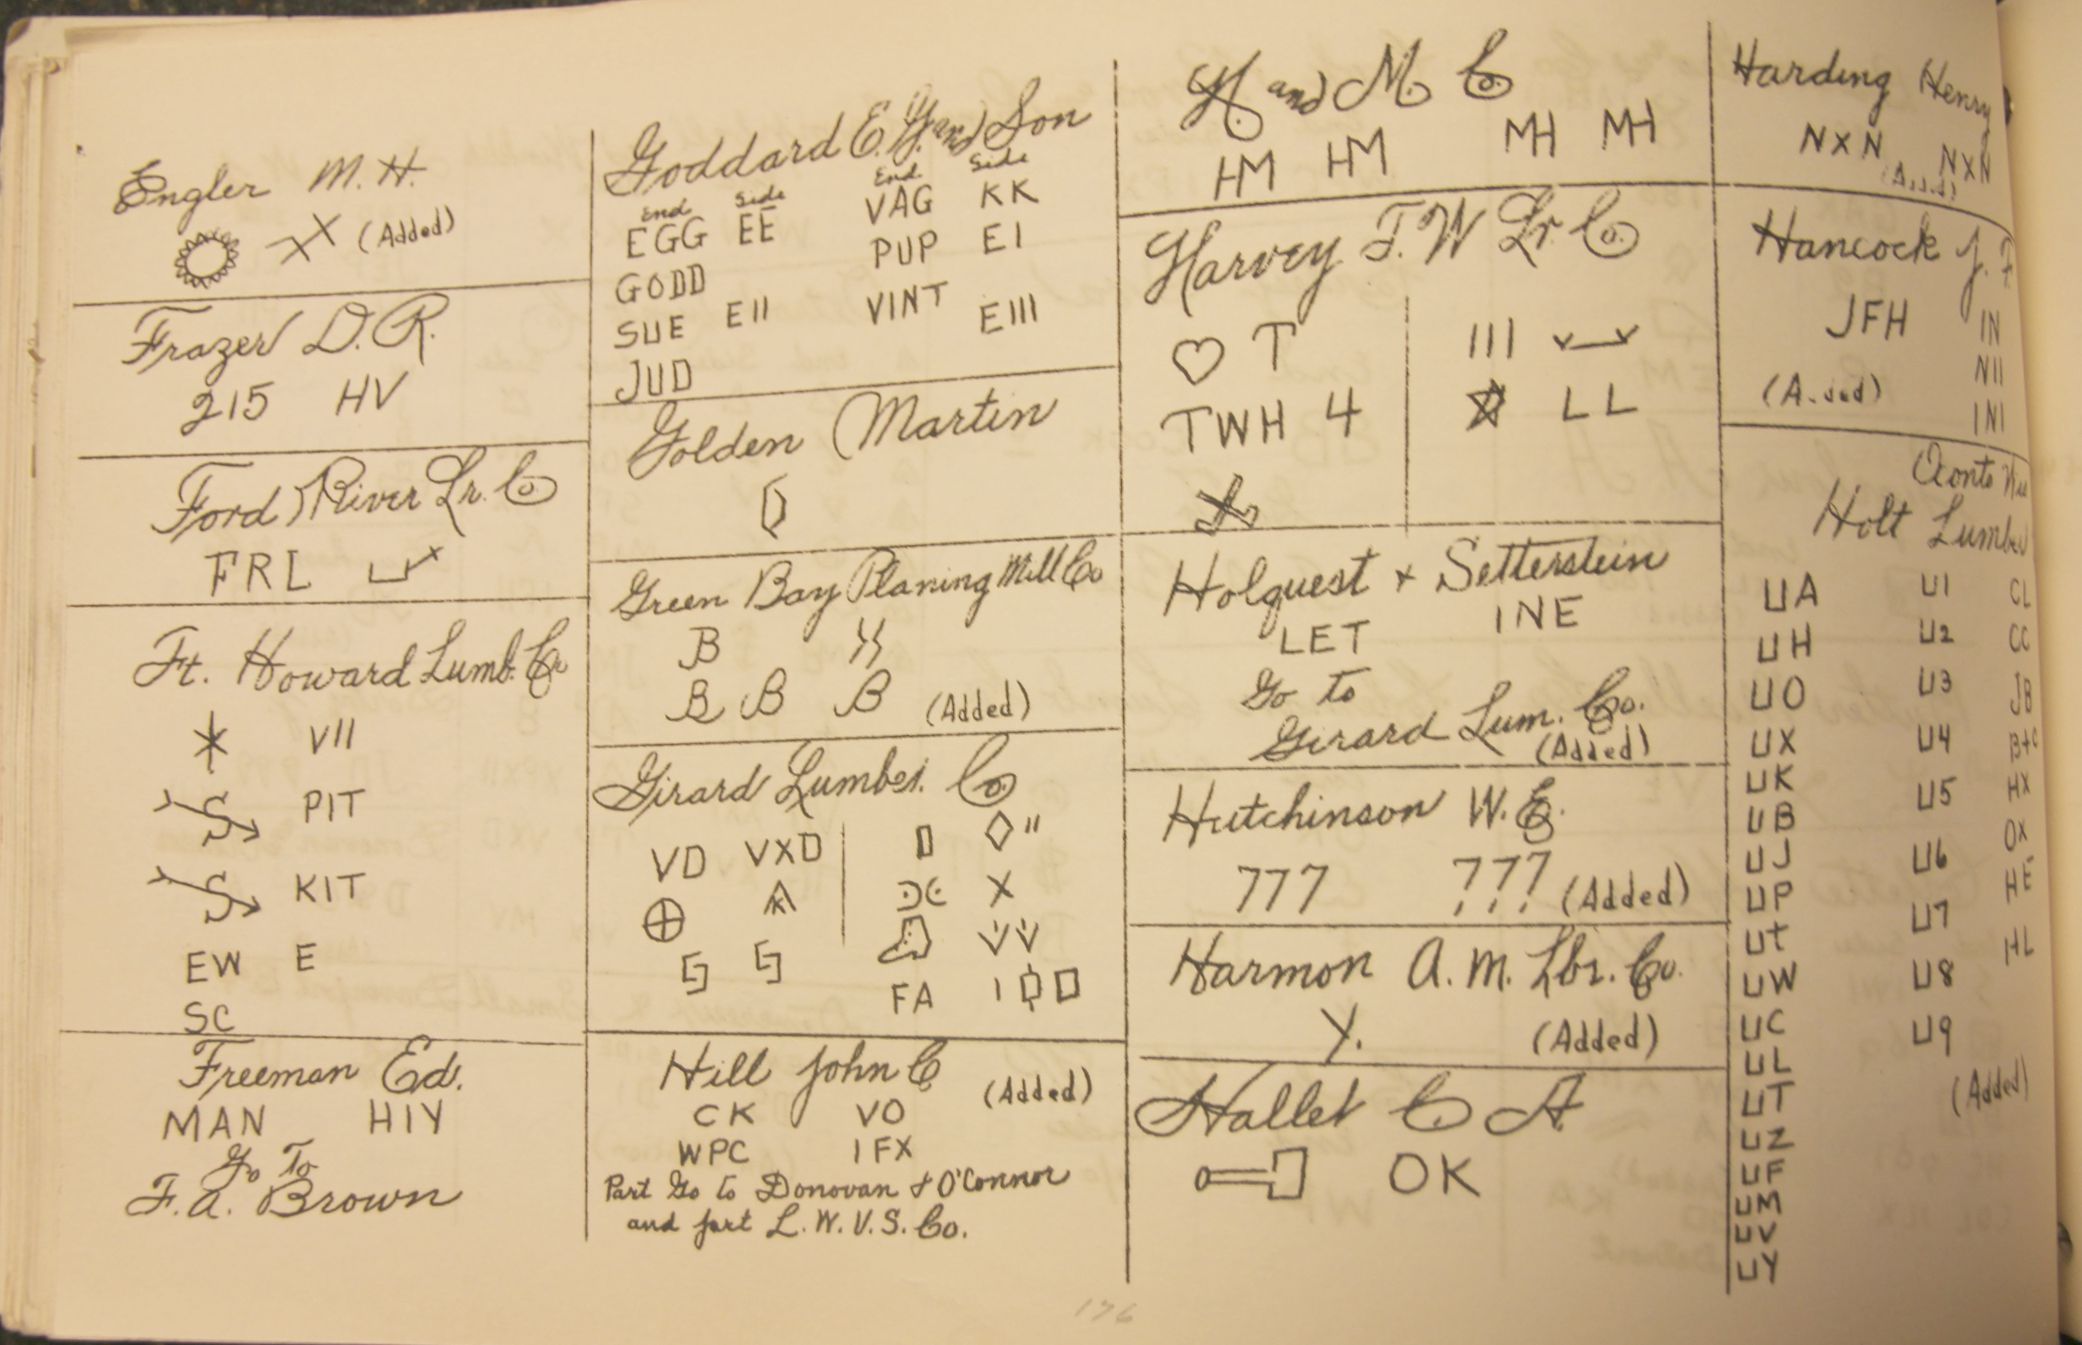 Engler M. H.
XX (Added)
Frazer D. R.
215 HV
Ford River Lr. Co
FRL
Ft. Howard Lumb. Co
VII
S PIT
S KIT
EW E
SC
Freeman Ed.
MAN HIY
Go To
F. A. Brown
Goddard E. G. and Son
End Side End Side
EGG EE VAG KK
GODD PUP EI
SUE EII VINT EIII
JUD
Golden Martin
Green Bay Planing Mill Co
B
B B B (Added)
Girard Lumber Co
VD VXD
X
FA
Hill John C (Added)
CK VO
WPC IFX
Part Go to Donovan & O'Connor
and part L. W. V. S. Co.
H and M. Co
HM HM MH MH
Harvey T. W Lr. Co.
T III
TWH 4 LL
Holquest + Setterstein
LET INE
Go to
Girard Lum. Co.
(Added)
Hutchinson W. E.
777 ??? (Added)
Harmon A. M. Lbr. Co.
Y. (Added)
Hallet C A
OK
Harding Henry
NXN NXN
(Added)
Hancock J. F.
JFH IN
NII
(Added) INI
Oconto
Holt Lumber
UA U1 CL
UH U2 CC
UO U3 JB
UX U4
UK U5 HX
UB
UJ U6 OX
UP HE
Ut U7
UW U8 HL
UC U9
UL
UT (Added)
UZ
UF
UM
UV
UY
176